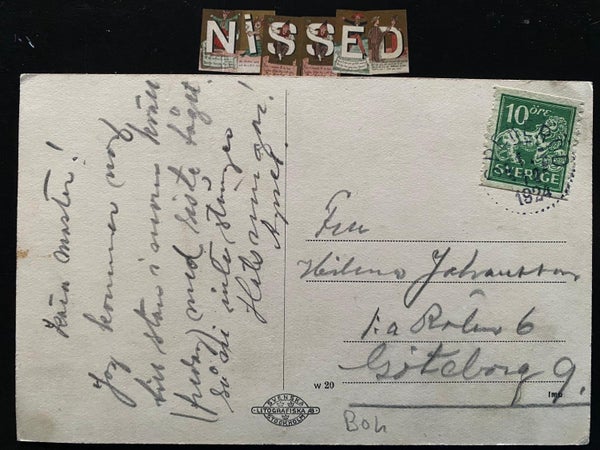 NiSSED
Kära moster!
Jag kommer nog
till stan i morn kväll
(fredag) med sista tåget
så du inte stänger
Hälsningar!
Agnes.
10 ÖRE
SVERIGE
1924
Fru
Helena Johansson
1:a Rölns 6
Göteborg 9.
W 20
SVENSKA
LITOGRAFISKA AB
STOCKHOLM
Imp
Boh